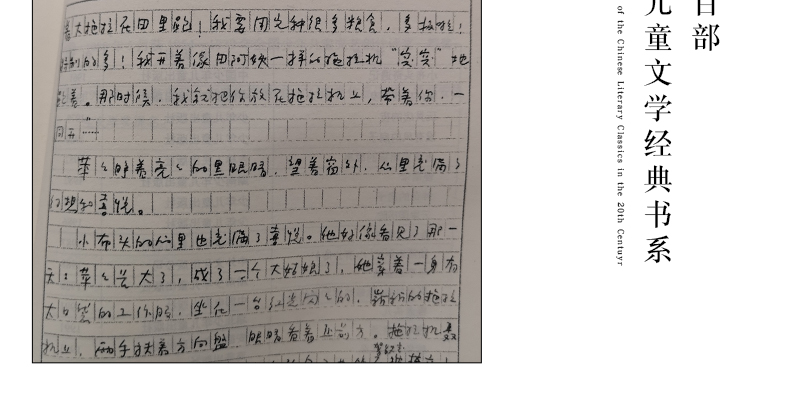 着大拖拉在田里跑！我要用它种很多粮食，多极啦！
特别的多！我开着像田阿姨一样的拖拉机“突突”地
跑着。那时候，我就把你放在拖拉机上，带着你，一
同开……
苹苹睁着亮亮的黑眼睛，望着窗外，心里充满了
幻想和喜悦。
小布头的心里也充满了喜悦。他好像看见了那一
天：苹苹长大了，成了一个大姑娘了，她穿着一身有
大口袋的工作服，坐在一台红通通的、崭新的拖拉
机上，两手扶着方向盘，眼睛看着正前方。拖拉机
百部
儿童文学经典书系
of the Chinese Literary Classics in the 20th Centuyr